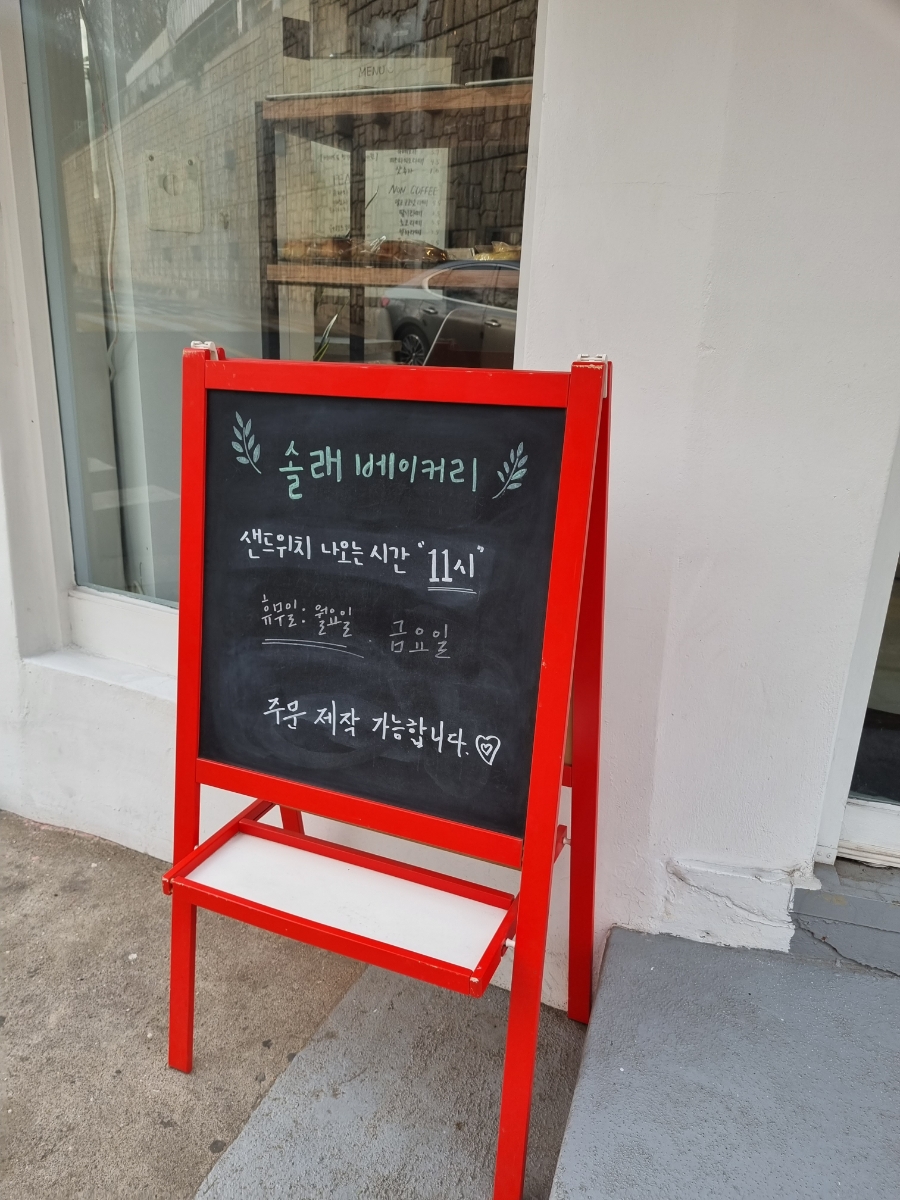 MENU
NON COFFEE
솔래 베이커리
샌드위치 나오는 시간 "11시"
휴무일: 월요일. 금요일
주문 제작 가능합니다.